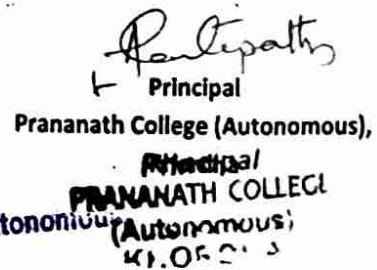 Principal
Prananath College (Autonomous),
Principal
PRANANATH COLLEGE
(Autonomous)